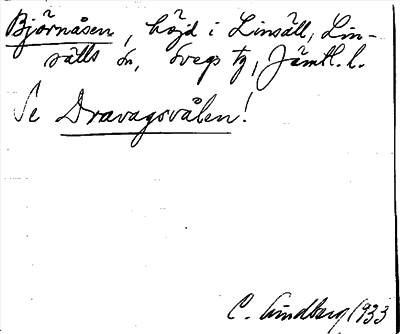 Björnåsen, höjd i Linsäll, Lin-
sälls sn, Svegs tg, Jämtl. l.
Se Dravagsvålen!
C. Lindberg 1933